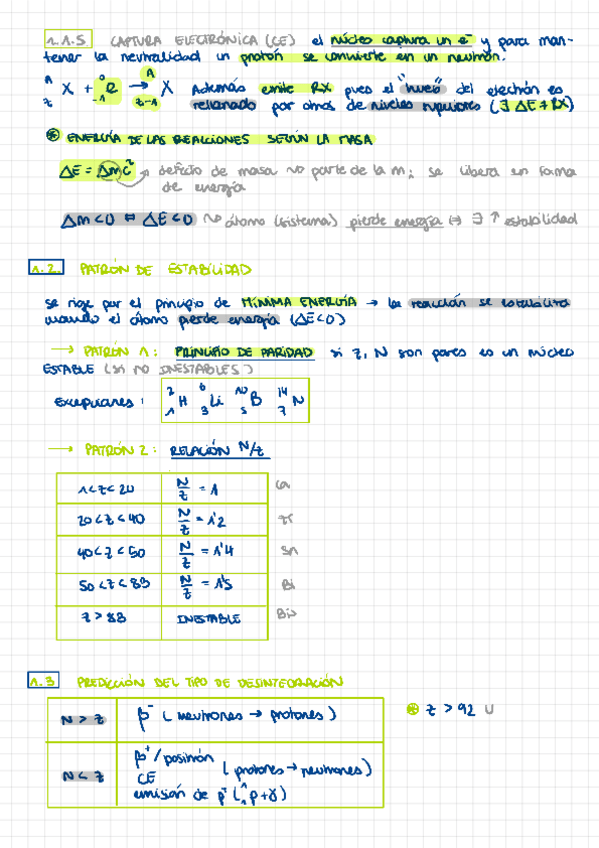 1.1.5. CAPTURA ELECTRÓNICA (CE) el núcleo captura un e⁻ y para man-
tener la neutralidad un protón se convierte en un neutrón.
ᴬ_Z X + ⁰_₋₁ e → ᴬ_Z₋₁ X Además emite RX pues el "hueco" del electrón es
rellenado por otros de niveles superiores (∃ ΔE ≠ RX)
⊛ ENERGÍA DE LAS REACCIONES SEGÚN LA MASA
ΔE = Δmc² → defecto de masa ~> parte de la m; se libera en forma
de energía
Δm<0 ⇔ ΔE<0 ~> átomo (sistema) pierde energía ⇔ ∃ ↑ estabilidad
1.2. PATRÓN DE ESTABILIDAD
se rige por el principio de MÍNIMA ENERGÍA → la reacción se estabiliza
cuando el átomo pierde energía (ΔE<0)
→ PATRÓN 1: PRINCIPIO DE PARIDAD si Z, N son pares es un núcleo
ESTABLE (si no INESTABLES)
Excepciones: ²₁H ⁶₃Li ¹⁰₅B ¹⁴₇N
→ PATRÓN 2: RELACIÓN N/Z
1<Z<20 N/Z = 1 Ca
20<Z<40 N/Z = 1'2 Zr
40<Z<50 N/Z = 1'4 Sn
50<Z<83 N/Z = 1'5 Bi
Z > 83 INESTABLE Bi>
1.3 PREDICCIÓN DEL TIPO DE DESINTEGRACIÓN
N > Z β⁻ (neutrones → protones) ⊛ Z > 92 U
N < Z β⁺/positrón
CE (protones → neutrones)
emisión de p⁺ (¹₁p + γ)